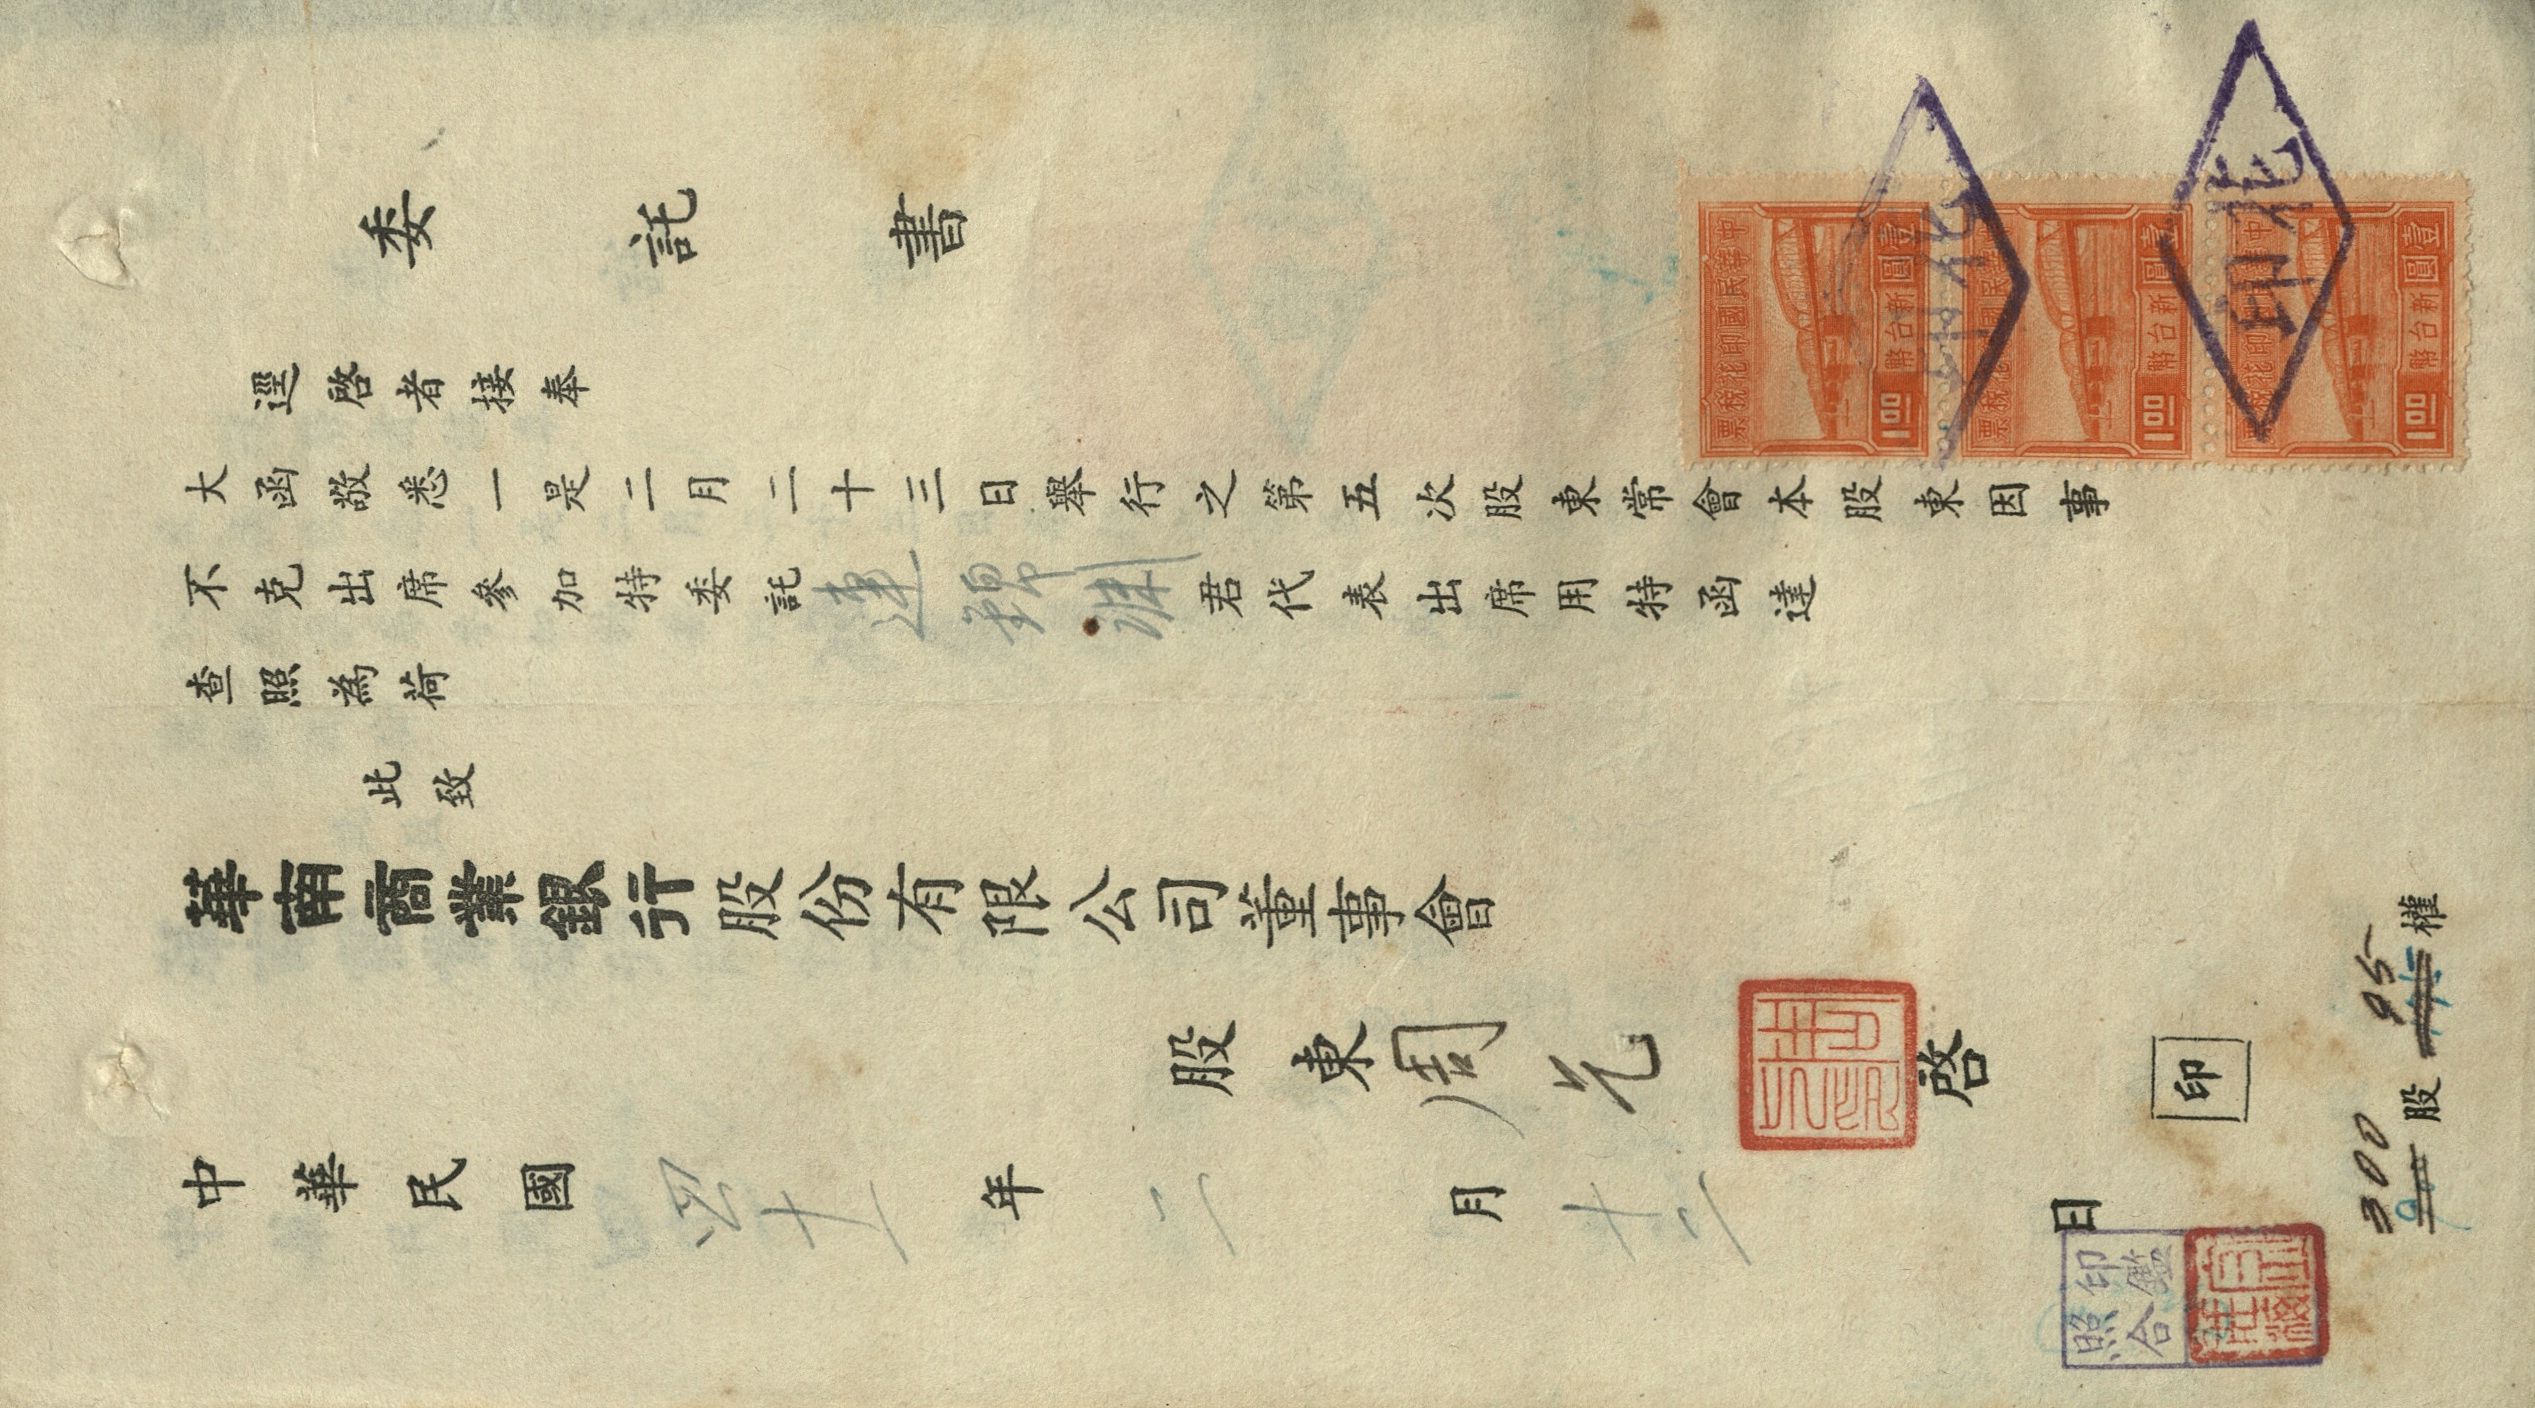 委託書
逕啓者接奉
大函敬悉一是二月二十三日舉行之第五次股東常會本股東因事
不克出席參加特委託連錦淵君代表出席用特函達
查照為荷
此致
華南商業銀行股份有限公司董事會
股東周元啓
印
中華民國四十一年二月十二日
300股 95權
印鑑
照合
中華民國印花稅票
壹圓
新台幣
1.00
中華民國印花稅票
壹圓
新台幣
1.00
中華民國印花稅票
壹圓
新台幣
1.00
印花
印花